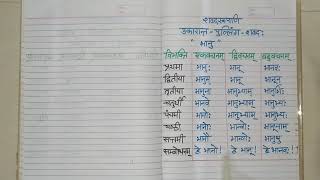 शब्दरूपाणि
उकारान्त - पुल्लिंग - शब्दः
" भानु "
विभक्ति एकवचनम् द्विवचनम् बहुवचनम्
प्रथमा भानुः भानू भानवः
द्वितीया भानुम् भानू भानून्
तृतीया भानुना भानुभ्याम् भानुभिः
चतुर्थी भानवे भानुभ्याम् भानुभ्यः
पंचमी भानोः भानुभ्याम् भानुभ्यः
षष्ठी भानोः भान्वोः भानूनाम्
सप्तमी भानौ भान्वोः भानुषु
सम्बोधनम् हे भानो! हे भानू! हे भानवः!